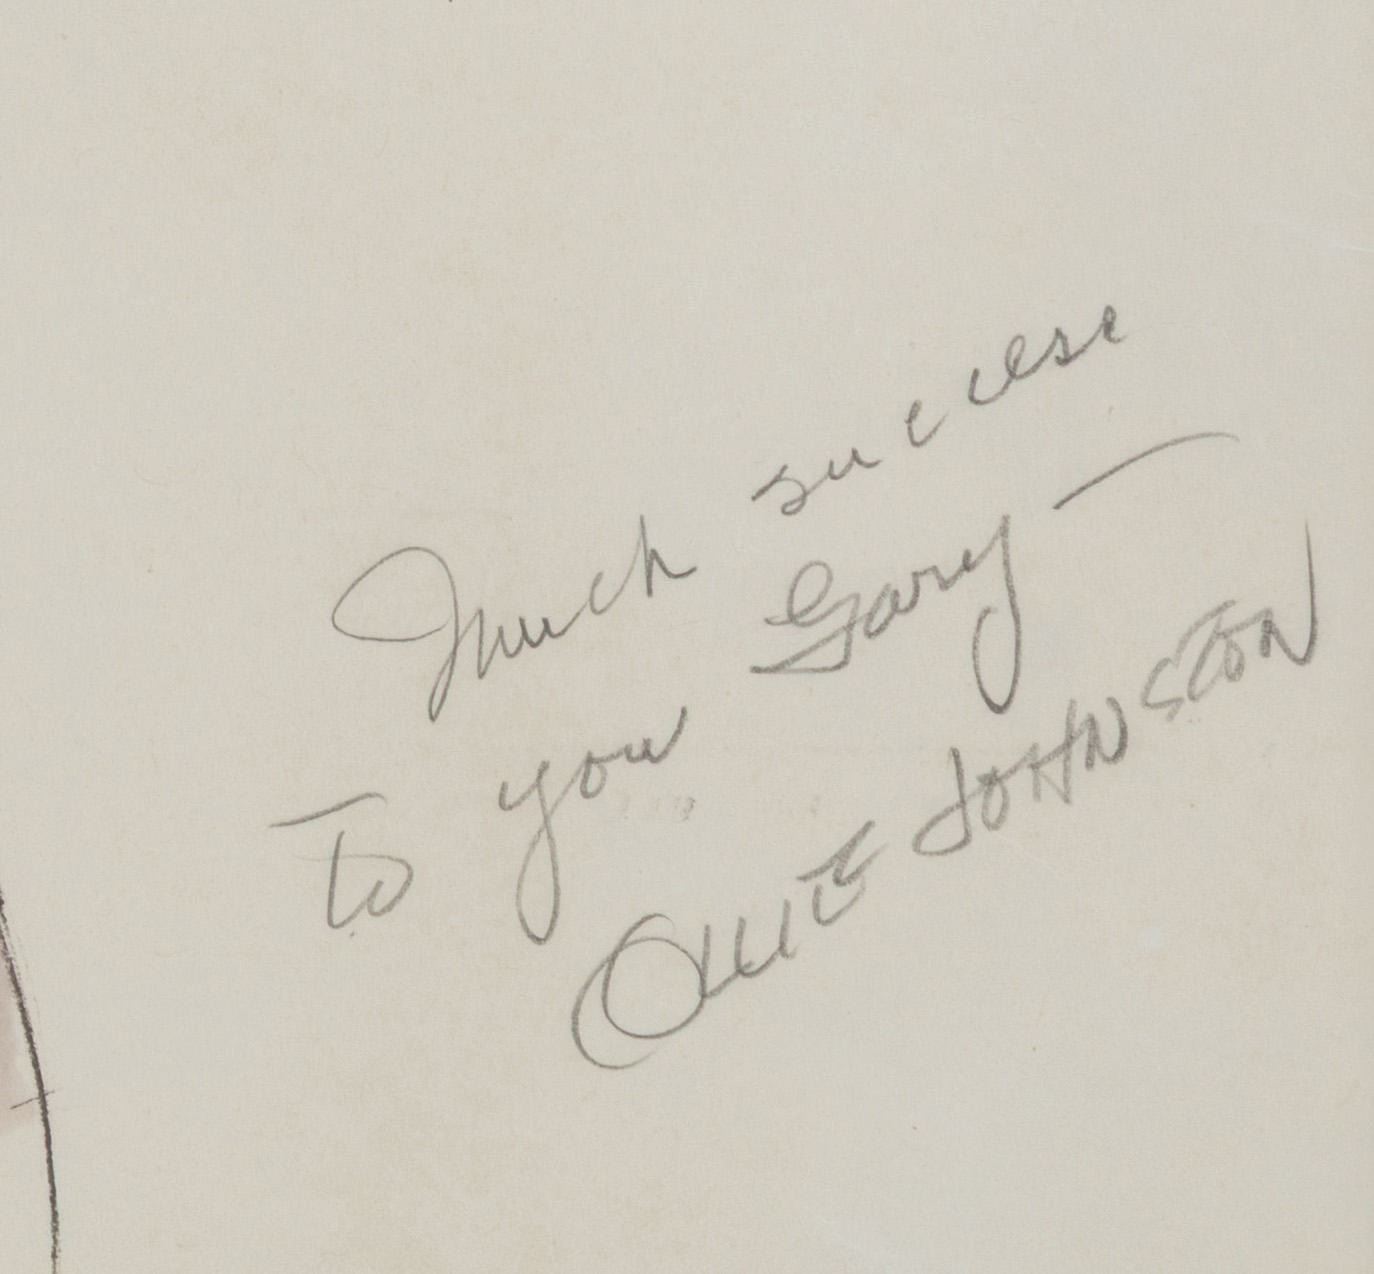 Much success
to you Gary —
OLLIE JOHNSTON